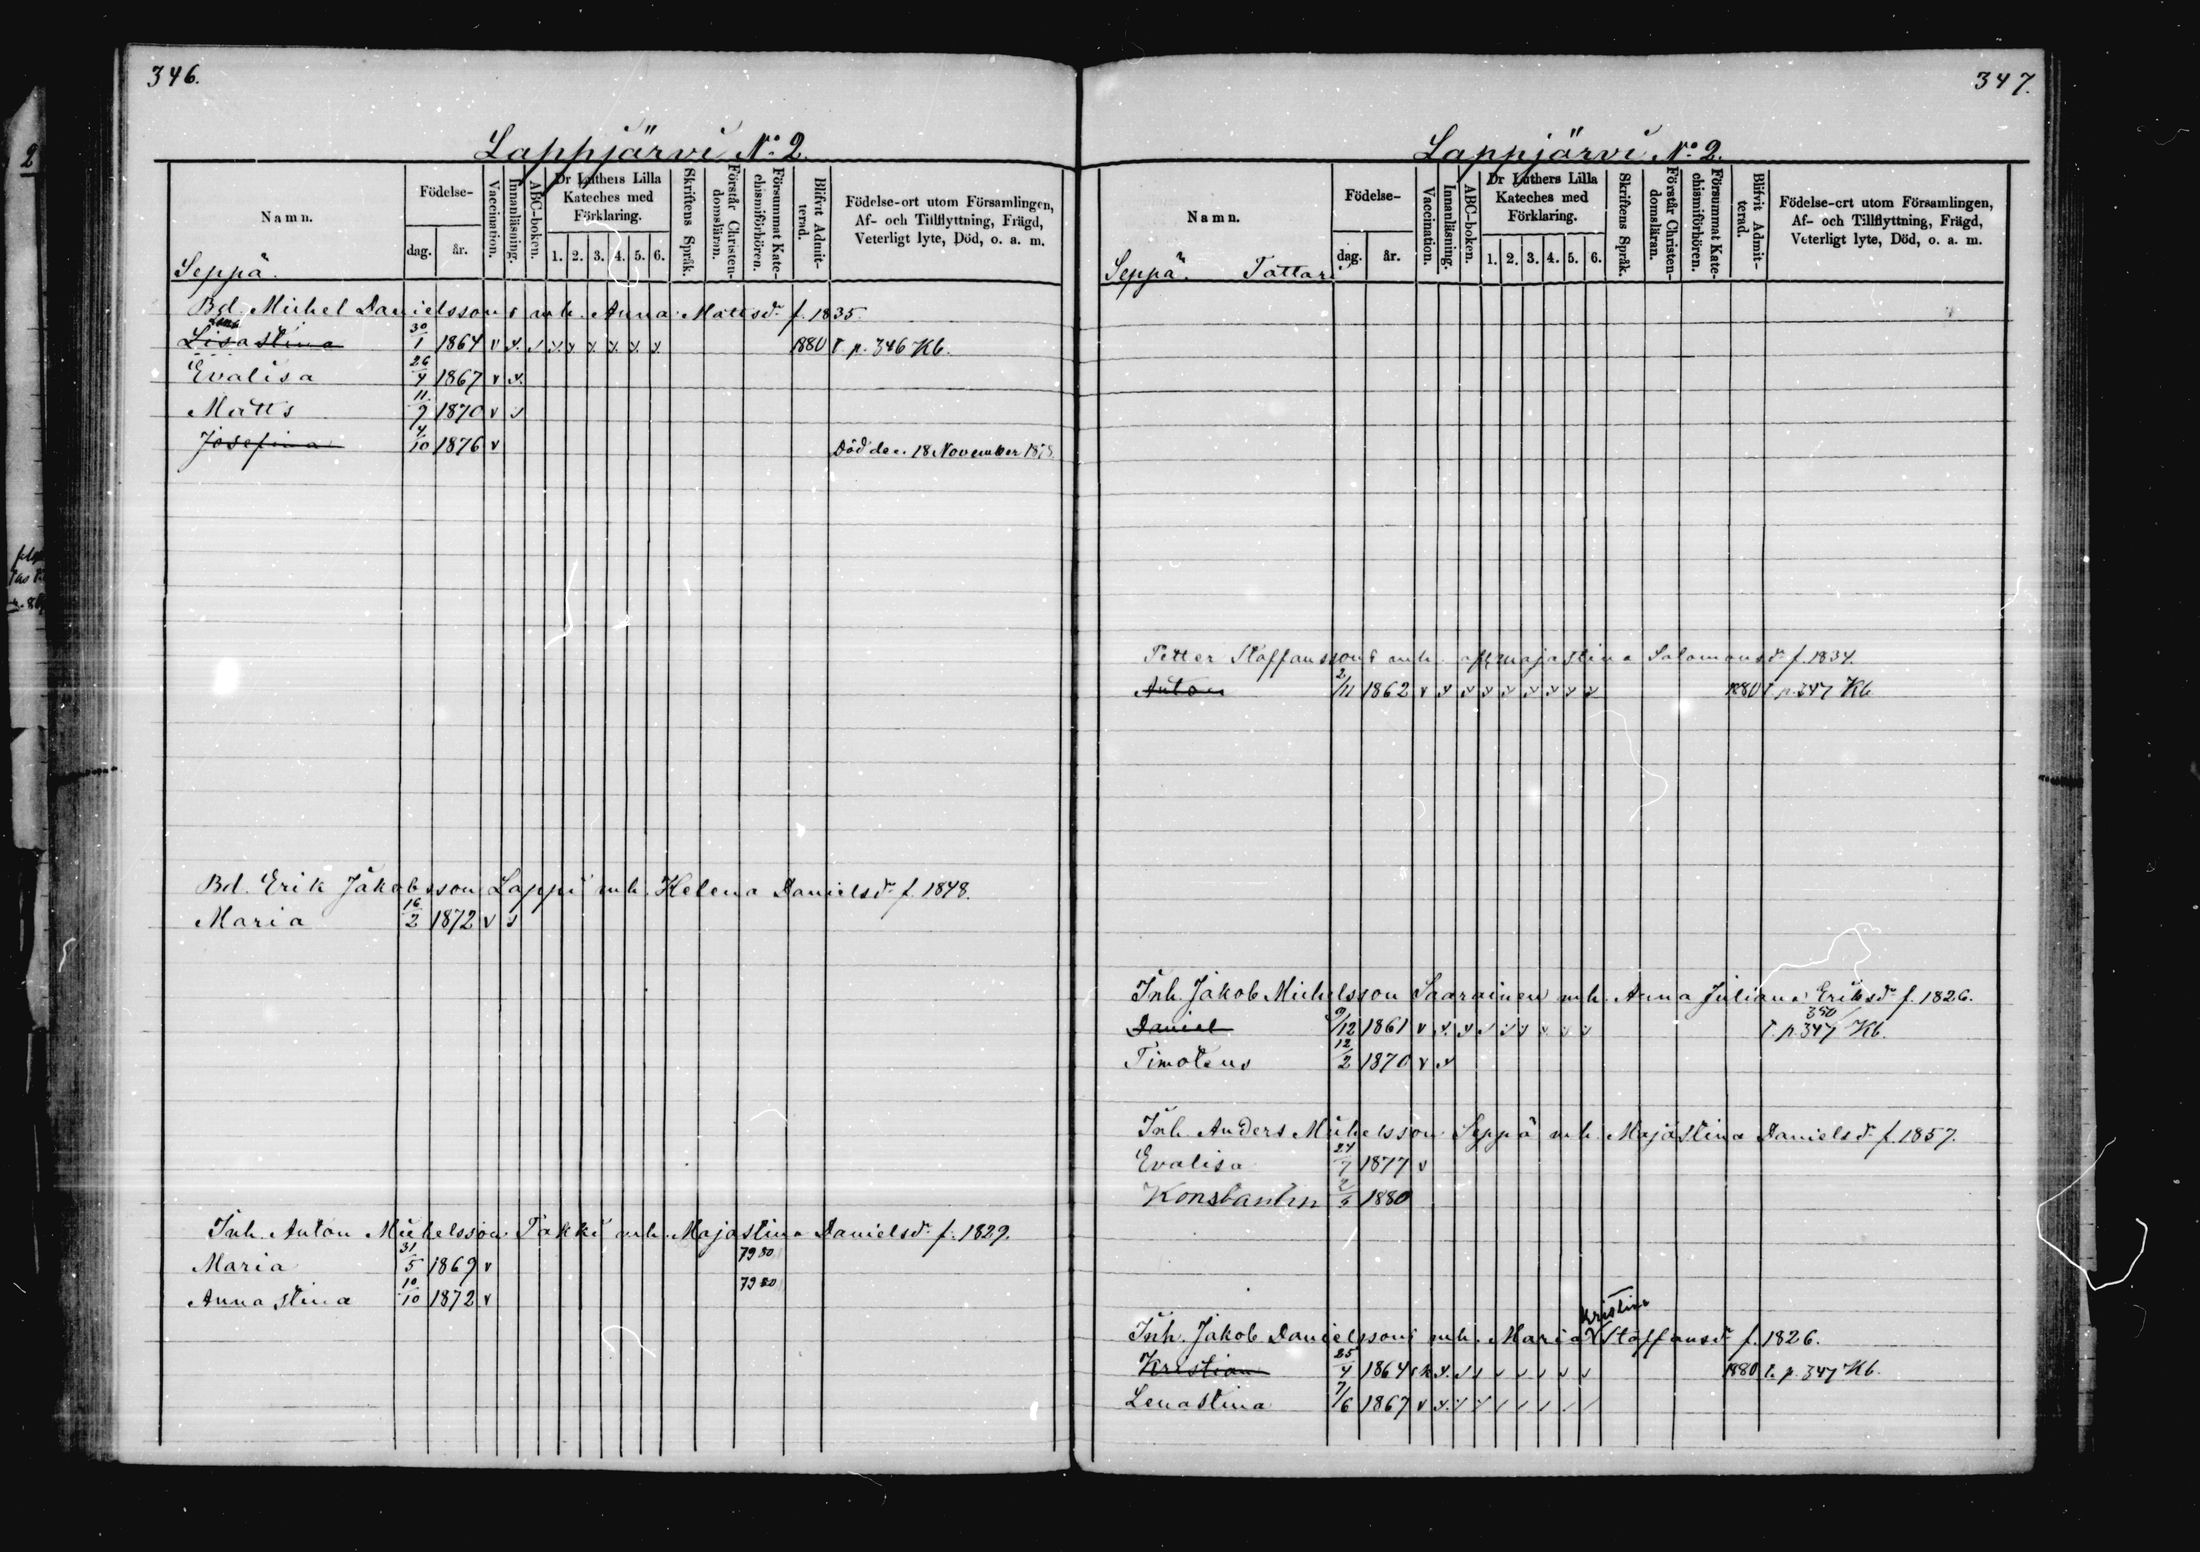 346.
Lappjärvi No 2.
Namn.
Födelse-
dag.
år.
Vaccination.
Innanläsning.
ABC-boken.
Dr Luthers Lilla Kateches med Förklaring.
1. 2. 3. 4. 5. 6.
Skriftens Språk.
Förstår Christen-domsläran.
Försummat Kate-chismiförhören.
Blifvit Admit-terad.
Födelse-ort utom Församlingen, Af- och Tillflyttning, Frägd, Veterligt lyte, Död, o. a. m.
Seppä.
Bd. Michel Danielssons mh. Anna Mattsdr f. 1835.
Lisastina 30/1 1864 v v. v v. v. v. v. v. v. 1880 T. p. 346 Kb.
Evalisa 26/4 1867 v v.
Matts 11/9 1870 v v
Josefina 4/10 1876 v Död den 18 November 187
Bd. Erik Jakobsson Lappi mh. Helena Danielsdr f. 1848.
Maria 16/2 1872 v v
Inh. Anton Michelsson Takki mh. Majastina Danielsdr f. 1829.
Maria 31/5 1869 v 79 80
Annastina 10/10 1872 v 79 80
347.
Lappjärvi No 2.
Namn.
Födelse-
dag.
år.
Vaccination.
Innanläsning.
ABC-boken.
Dr Luthers Lilla Kateches med Förklaring.
1. 2. 3. 4. 5. 6.
Skriftens Språk.
Förstår Christen-domsläran.
Försummat Kate-chismiförhören.
Blifvit Admit-terad.
Födelse-ort utom Församlingen, Af- och Tillflyttning, Frägd, Veterligt lyte, Död, o. a. m.
Seppä. Tattari
Petter Staffanssons mh. Majastina Salomonsdr f. 1834.
Anton 2/11 1862 v v v v v v v v v 1880 T. p. 347 Kb
Inh. Jakob Michelsson Saarainen mh. Anna Juliana Eriksdr f. 1826.
350
Daniel 9/12 1861 v v. v v v v v v v T. p. 347 Kb.
Timoteus 12/2 1870 v v
Inh. Anders Michelsson Seppä mh. Majastina Danielsdr f. 1857.
Evalisa 24/7 1877 v
Konstantin 2/6 1880
Kristina
Inh. Jakob Danielssons mh. Maria Staffansdr f. 1826.
Kristian 25/4 1864 v. v v v v v v v 1880 T. p. 347 Kb.
Lenastina 7/6 1867 v v. v v v v v v v